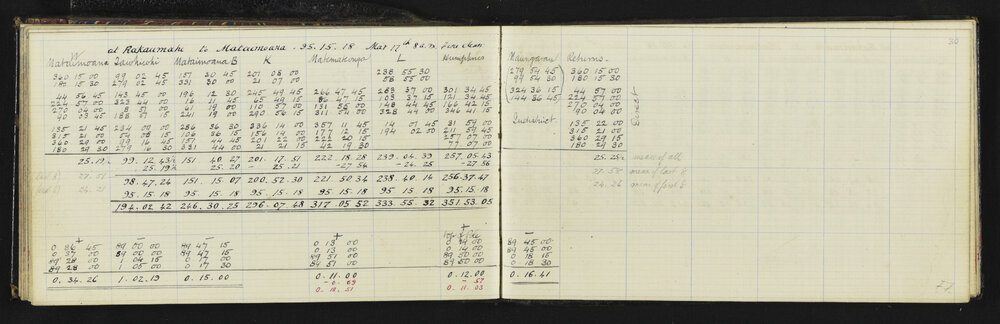 30
at Rakaumahi to Mataimoana . 95.15.18 Mar 17th 8 a.m. Fine Clear
W
Mataimoana Tawhiwhi Mataimoana B K Matemateonga L Humphries Maungarau Returns
360 15 00 99 02 45 151 30 45 201 08 00 238 55 30 279 54 45 360 15 00
180 15 30 279 02 45 331 30 00 21 07 00 58 55 00 99 54 30 180 15 30
44 56 45 143 45 00 196 12 30 245 49 45 266 47 45 283 37 00 301 34 45 324 36 15 44 57 00
224 57 00 323 44 00 16 11 45 65 49 15 86 47 15 103 37 15 121 34 45 144 36 45 224 57 00
270 04 00 8 57 00 61 19 00 110 57 00 131 55 00 148 44 45 166 42 15 270 04 00
90 03 45 188 57 15 241 19 00 290 56 15 311 54 00 328 44 00 346 41 15 90 04 00
Direct
Indistinct
135 21 45 234 00 00 286 36 30 336 14 00 357 11 45 14 01 45 31 59 00 135 22 00
315 21 00 54 08 15 106 36 15 156 14 00 177 12 15 194 02 00 211 59 45 315 21 00
360 29 00 99 16 45 151 44 45 201 22 00 222 20 15 257 07 00 360 29 00
180 29 30 279 16 30 331 44 00 21 21 15 42 19 30 77 07 00 180 29 30
25.19½ 99. 12. 43½ 151 40 27 201. 17. 51 222. 18. 28 239. 04. 39 257. 05. 43 25. 25½ mean of all
25.19½ 25.20 - 25.21 - 27.54 - 24.25 - 27.56
27.51 98. 47. 24 151. 15 07 200. 52. 30 221. 50 34 238. 40. 14 256. 37. 47 27. 58 mean of last 8
24. 21 95. 15. 18 95. 15. 18 95. 15. 18 95 15 18 95 15 18 95. 15. 18 24. 26 mean of first 8
194. 02. 42 246. 30. 25 296. 07. 48 317. 05 52 333. 55. 32 351. 53. 05
+ - - + + -
0 36 45 89 00 00 89 47 15 0 13 00 0 14 00 89 45 00
0 37 00 89 00 00 89 47 15 0 13 00 0 14 00 89 45 00
89 28 00 1 04 15 0 17 00 89 51 00 89 50 00 0 18 15
89 28 00 1 05 00 0 17 30 89 51 00 89 50 00 0 18 30
0. 34. 26 1. 02. 19 0. 15. 00 0. 11. 00 0. 12. 00 0. 16. 41